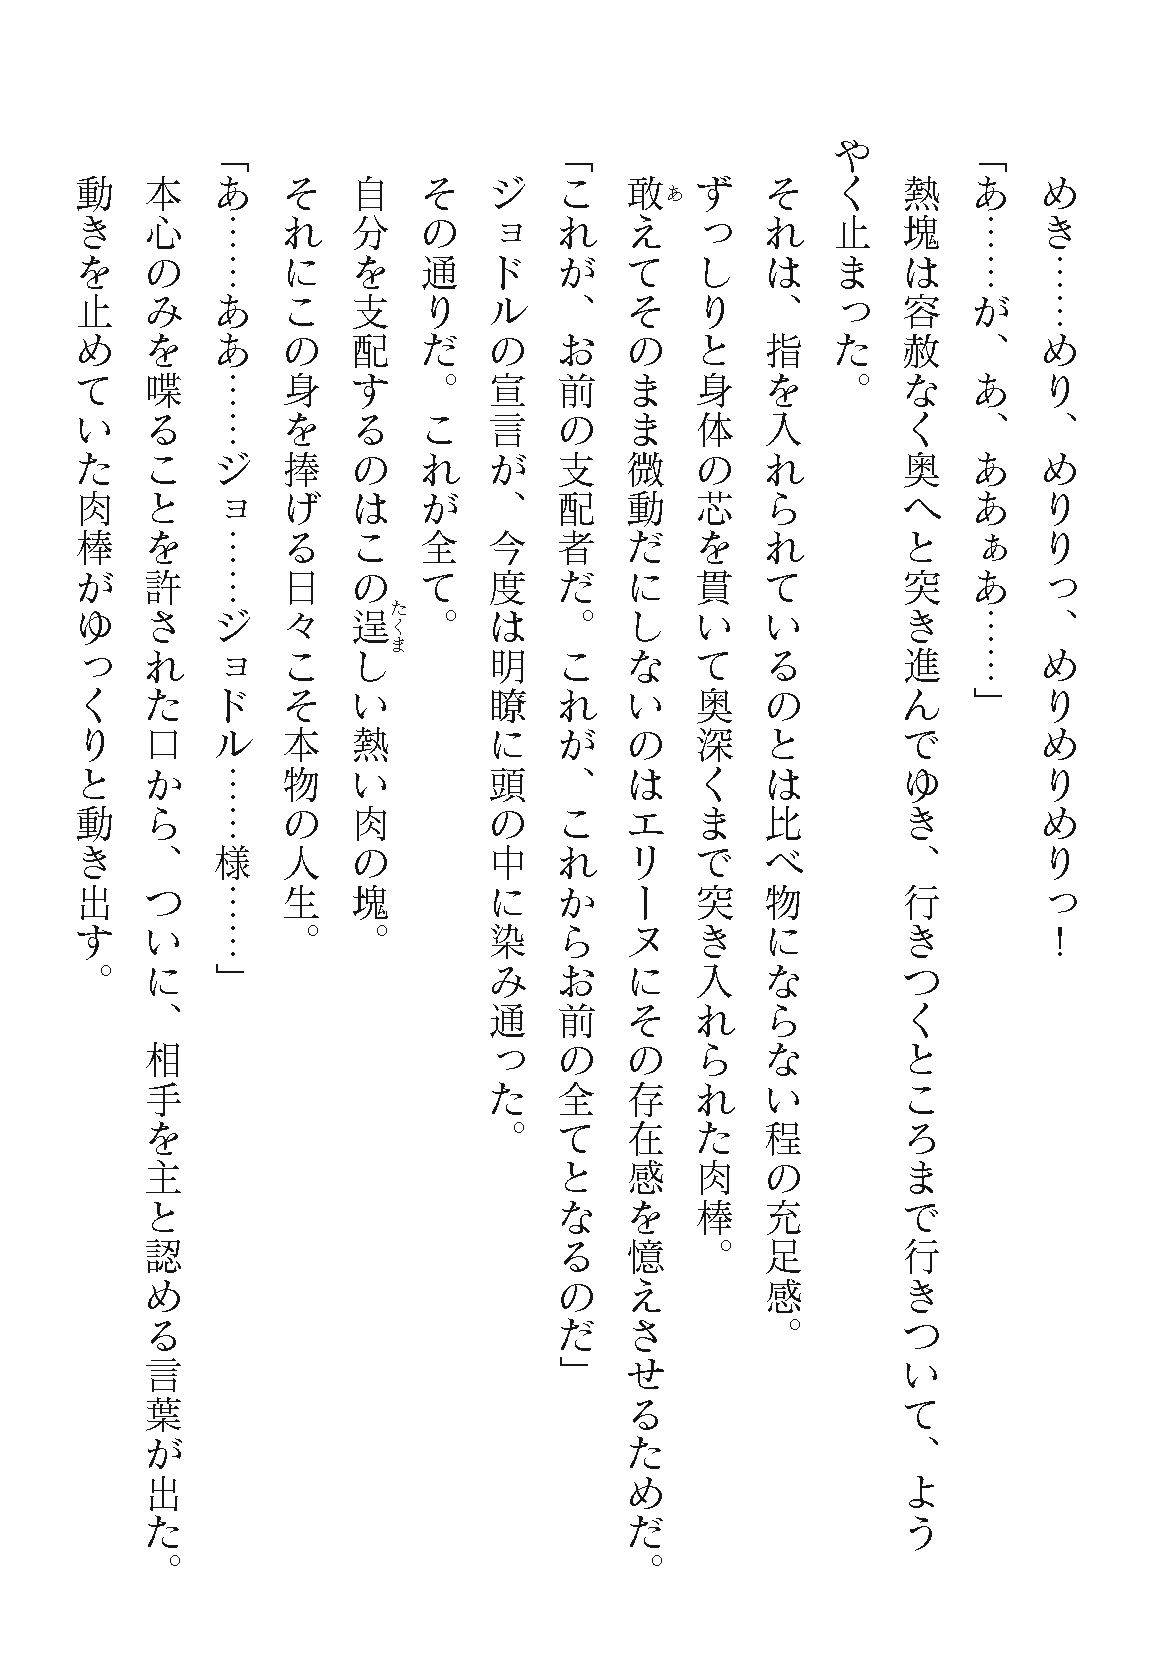 めき……めり、めりりっ、めりめりめりっ！
「あ……が、あ、ああぁあ……」
熱塊は容赦なく奥へと突き進んでゆき、行きつくところまで行きついて、よう
やく止まった。
それは、指を入れられているのとは比べ物にならない程の充足感。
ずっしりと身体の芯を貫いて奥深くまで突き入れられた肉棒。
敢えてそのまま微動だにしないのはエリーヌにその存在感を憶えさせるためだ。
「これが、お前の支配者だ。これが、これからお前の全てとなるのだ」
ジョドルの宣言が、今度は明瞭に頭の中に染み通った。
その通りだ。これが全て。
自分を支配するのはこの逞しい熱い肉の塊。
それにこの身を捧げる日々こそ本物の人生。
「あ……ああ……ジョ……ジョドル……様……」
本心のみを喋ることを許された口から、ついに、相手を主と認める言葉が出た。
動きを止めていた肉棒がゆっくりと動き出す。